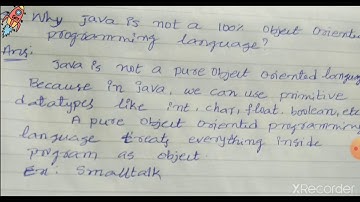 Why Java is not a 100% object oriented
programming language?
Ans:
Java is not a pure object oriented language
Because in java, we can use primitive
datatypes like int, char, float, boolean, etc
A pure object oriented programming
language treats everything inside
program as object.
Ex: Smalltalk
XRecorder